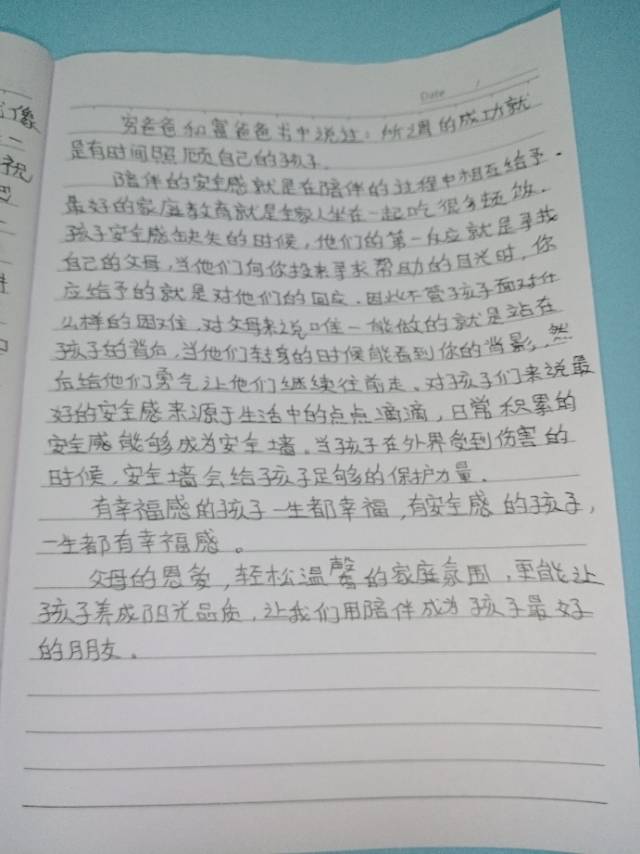 Date /
穷爸爸和富爸爸书中说过：所谓的成功就
是有时间照顾自己的孩子.
陪伴的安全感就是在陪伴的过程中相互给予.
最好的家庭教育就是全家人坐在一起吃很多顿饭.
孩子安全感缺失的时候，他们的第一反应就是寻找
自己的父母，当他们向你投来寻求帮助的目光时，你
应给予的就是对他们的回应.因此不管孩子面对什
么样的困难，对父母来说唯一能做的就是站在
孩子的背后，当他们转身的时候能看到你的背影，然
后给他们勇气让他们继续往前走.对孩子们来说最
好的安全感来源于生活中的点点滴滴，日常积累的
安全感能够成为安全墙.当孩子在外界受到伤害的
时候，安全墙会给孩子足够的保护力量.
有幸福感的孩子一生都幸福，有安全感的孩子，
一生都有幸福感。
父母的恩爱，轻松温馨的家庭氛围，更能让
孩子养成阳光品质，让我们用陪伴成为孩子最好
的朋友。
像
一
祝
巴